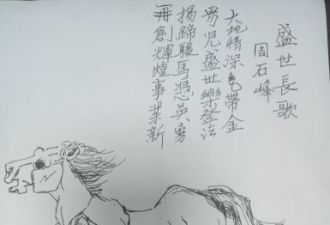 盛世長歌
周石峰
大地情深气带金
男児盛世樂登治
揚蹄駿馬憑英勇
再創輝煌事業新